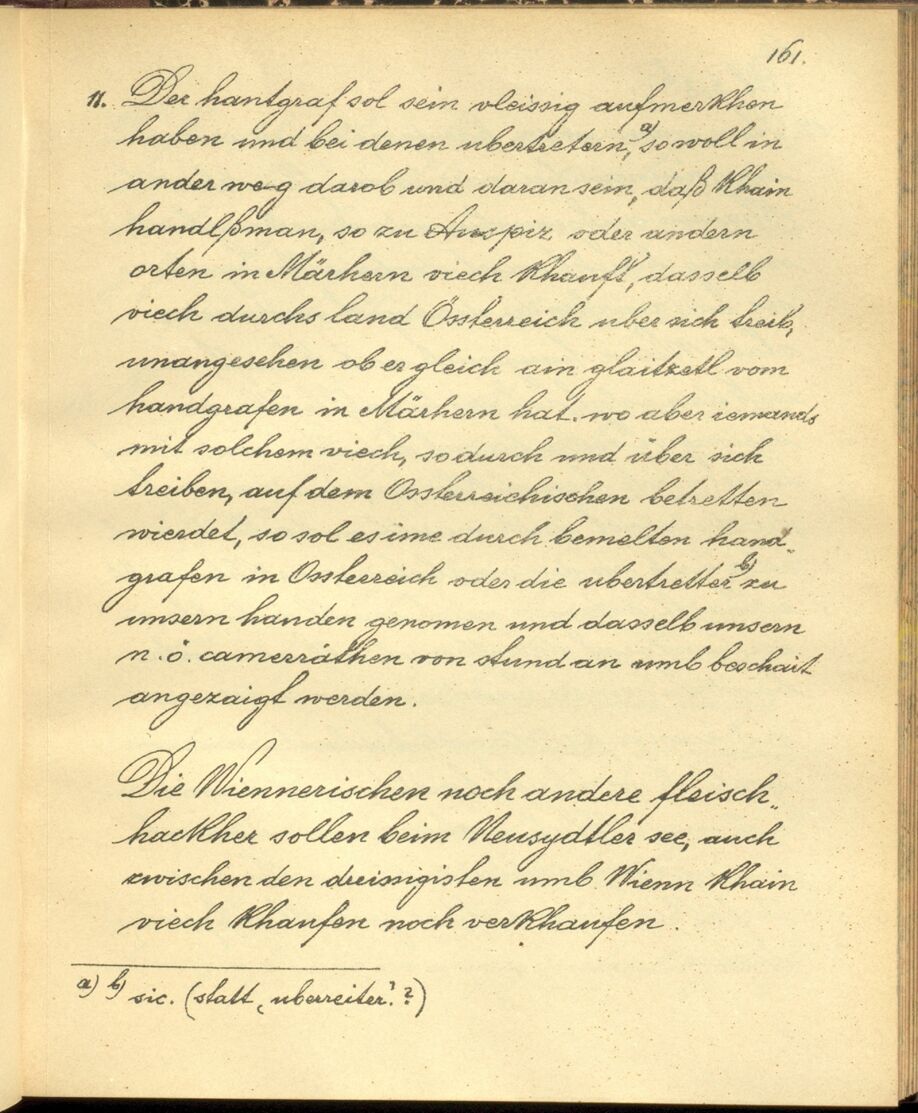 161.
11. Der hantgraf sol sein vleissig aufmerkhen
haben und bei denen ubertretern, a) so woll in
ander weg darob und daran sein, daß khain
handlßman, so zu Auspiz oder andern
orten in Märhern viech khauft, dasselb
viech durchs land Össterreich uber sich treib,
unangesehen ob er gleich ain glaitzetl vom
handgrafen in Märhern hat. wo aber iemands
mit solchem viech, so durch und über sich
treiben, auf dem Ossterreichischen betretten
wierdet, so sol es ime durch bemelten hand-
grafen in Ossterreich oder die ubertretter b) zu
unsern handen genomen und dasselb unsern
n. ö. camerräthen von stund an umb beschait
angezaigt werden.
Die Wiennerischen noch andere fleisch-
hackher sollen beim Neusydtler see, auch
zwischen den dreissigisten umb Wienn khain
viech khaufen noch verkhaufen.
a) b) sic. (statt ‚uberreiter'.?)